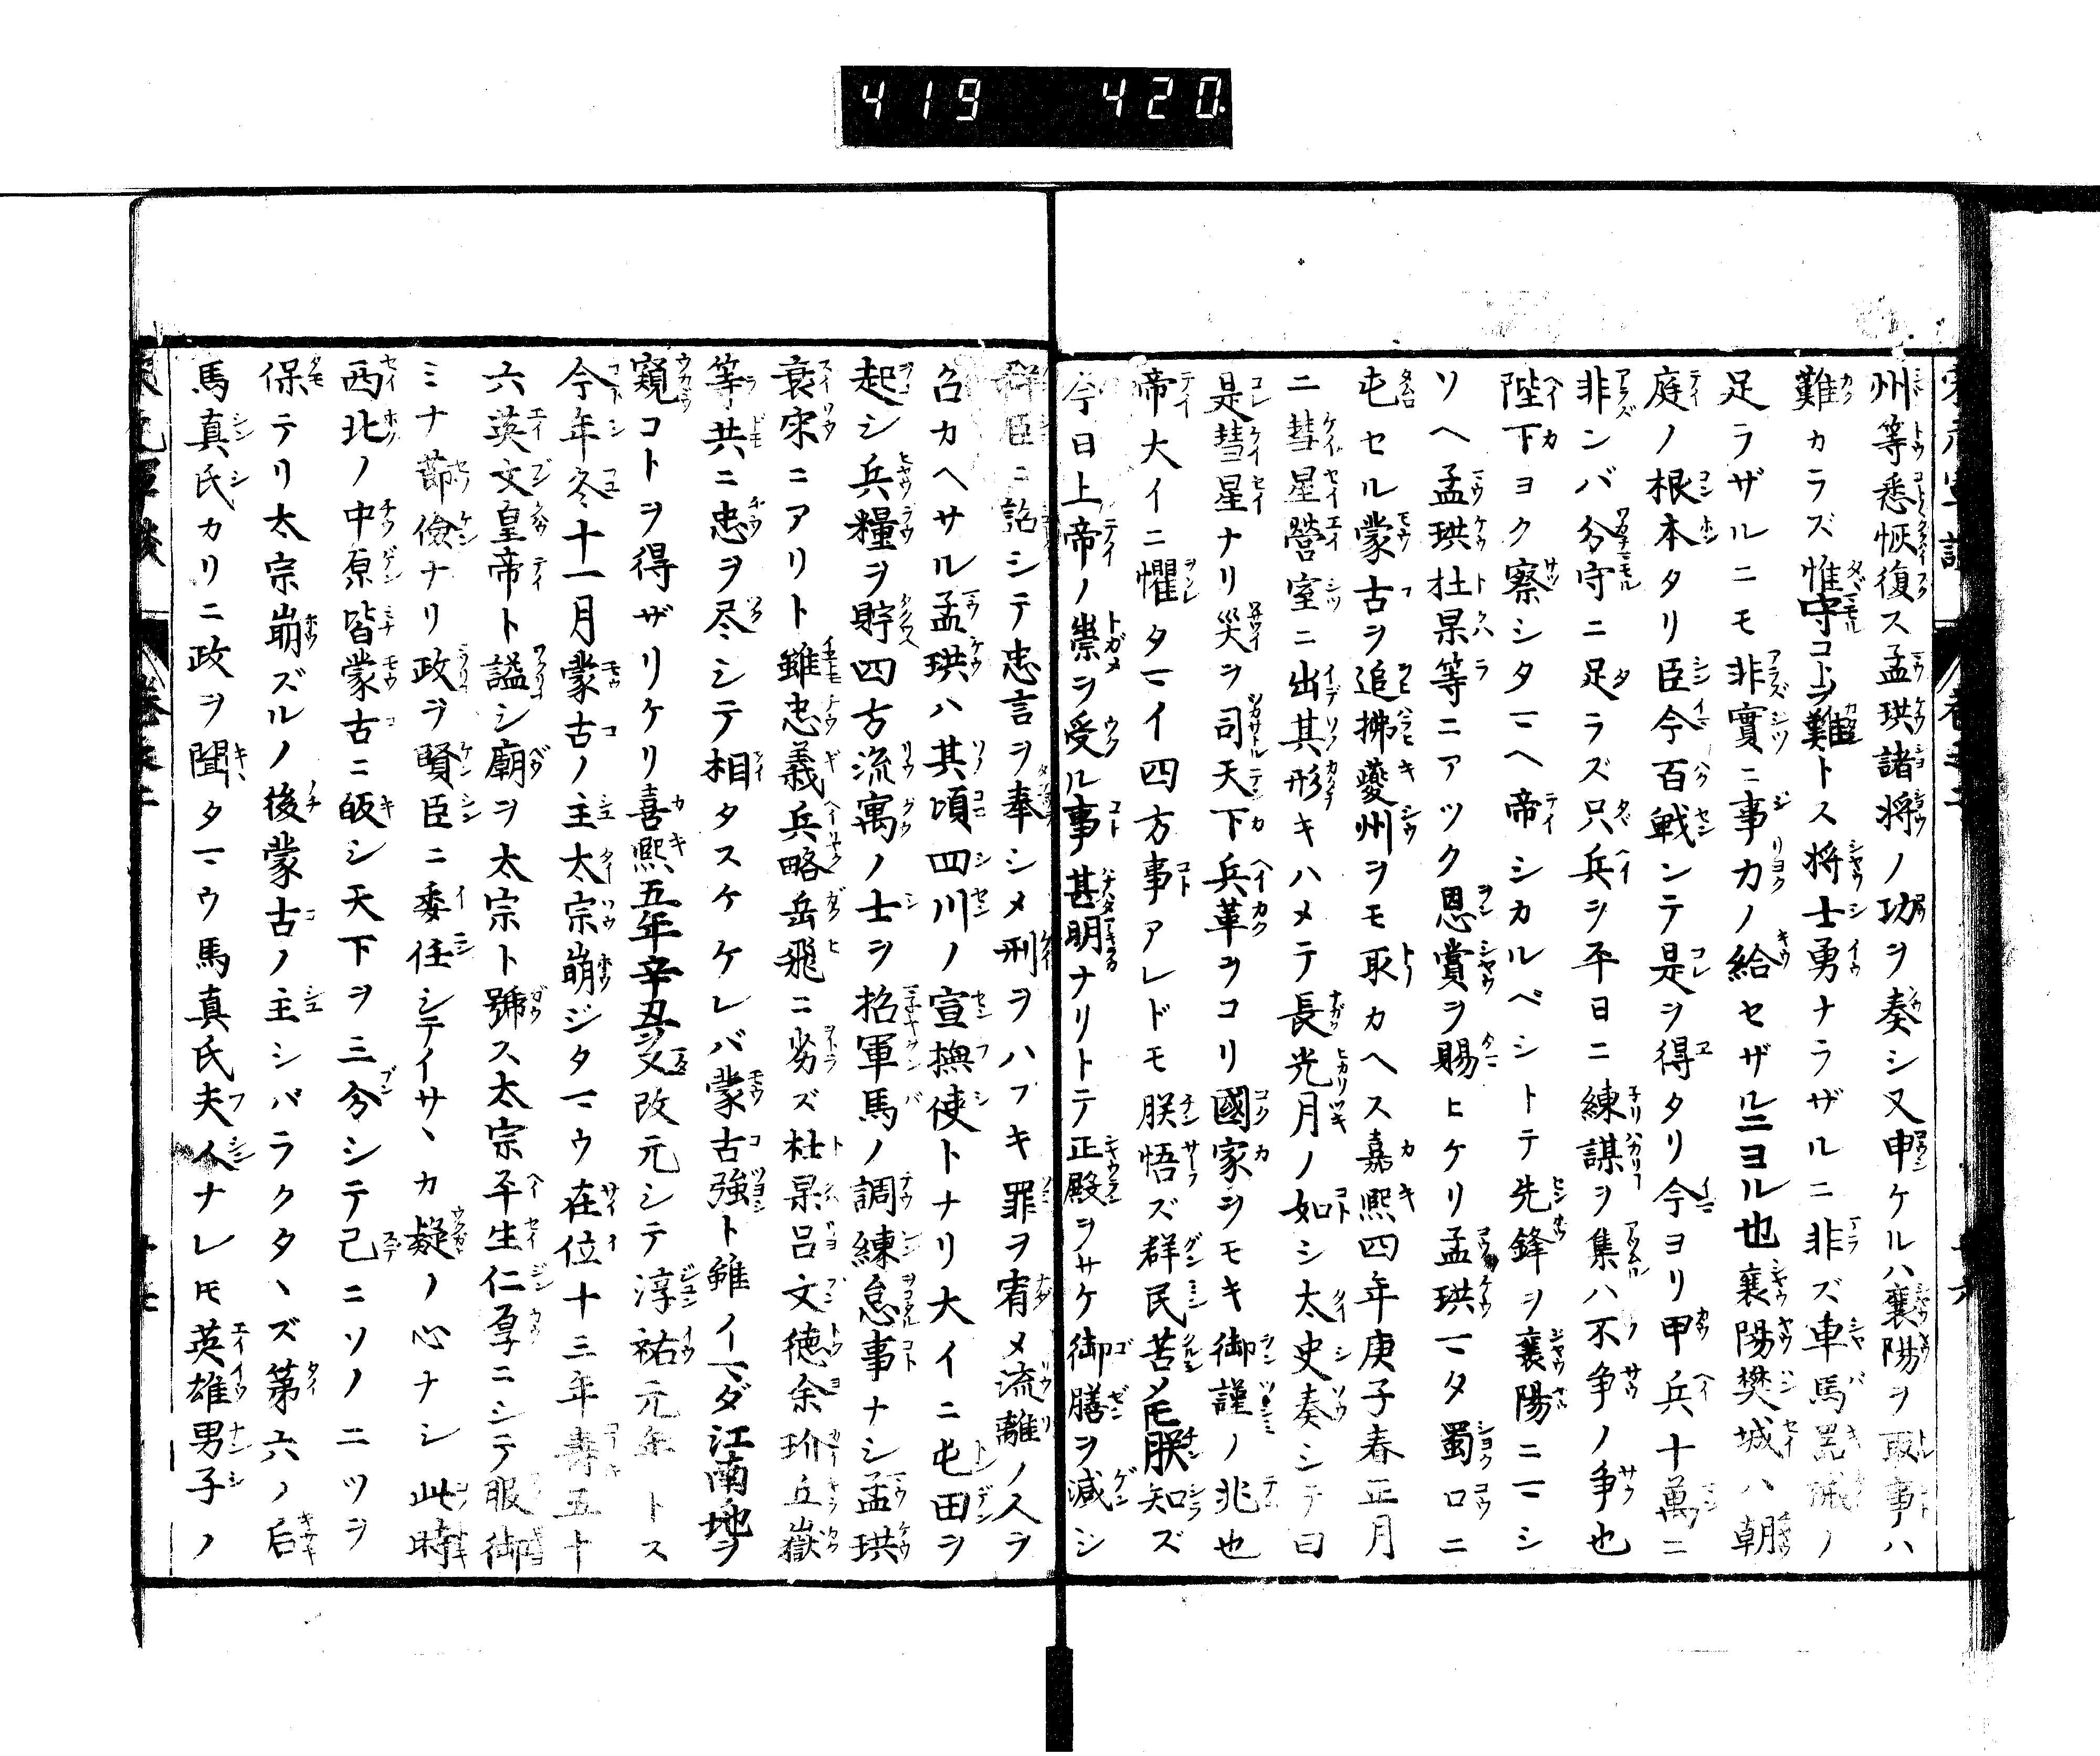 419 420
州等悉恢復ス孟珙諸将ノ功ヲ奏シ又申ケルハ襄陽ヲ取事ハ
難カラズ惟守コトヲ難トス将士勇ナラザルニ非ズ車馬器械ノ
足ラザルニモ非實ニ事力ノ給セザルニヨル也襄陽樊城ハ朝
庭ノ根本タリ臣今百戦ンテ是ヲ得タリ今ヨリ甲兵十萬ニ
非ンバ分守ニ足ラズ只兵ヲ平日ニ練謀ヲ集ハ不争ノ争也
陛下ヨク察シタマヘ帝シカルベシトテ先鋒ヲ襄陽ニマシ
ソヘ孟珙杜杲等ニアツク恩賞ヲ賜ヒケリ孟珙マタ蜀口ニ
屯セル蒙古ヲ追拂夔州ヲモ取カヘス嘉熙四年庚子春正月
ニ彗星營室ニ出其形キハメテ長光月ノ如シ太史奏シテ曰
是彗星ナリ災ヲ司天下兵革ヲコリ國家ヲモキ御謹ノ兆也
帝大イニ懼タマイ四方事アレドモ朕悟ズ群民苦メ𪜈朕知ズ
今日上帝ノ祟ヲ受ル事甚明ナリトテ正殿ヲサケ御膳ヲ減シ
群臣ニ詔シテ忠言ヲ奉シメ刑ヲハブキ罪ヲ宥メ流離ノ人ヲ
召カヘサル孟珙ハ其頃四川ノ宣撫使トナリ大イニ屯田ヲ
起シ兵糧ヲ貯四方流寓ノ士ヲ招軍馬ノ調練怠事ナシ孟珙
衰宋ニアリト雖忠義兵略岳飛ニ劣ズ杜杲呂文徳余玠丘嶽
等共ニ忠ヲ尽シテ相タスケケレバ蒙古強ト雖イマダ江南地ヲ
窺コトヲ得ザリケリ喜熙五年辛丑又改元シテ淳祐元年トス
今年冬十一月蒙古ノ主太宗崩ジタマウ在位十三年壽五十
六英文皇帝ト謚シ廟ヲ太宗ト號ス太宗平生仁厚ニシテ服御
ミナ節儉ナリ政ヲ賢臣ニ委任シテイサヽカ疑ノ心ナシ此時
西北ノ中原皆蒙古ニ皈シ天下ヲ三分シテ已ニソノ二ツヲ
保テリ太宗崩ズルノ後蒙古ノ主シバラクタヽズ第六ノ后
馬真氏カリニ政ヲ聞タマウ馬真氏夫人ナレ𪜈英雄男子ノ